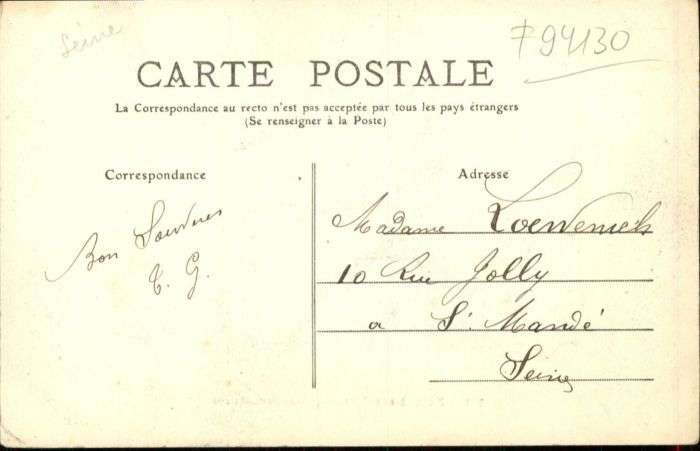 Seine
F94130
CARTE POSTALE
La Correspondance au recto n'est pas acceptée par tous les pays étrangers
(Se renseigner à la Poste)
Correspondance
Adresse
Bon Souvenir
G.
Madame
10 Rue Jolly
a St Mandé
Seine